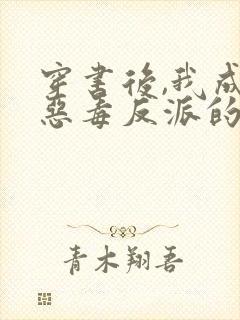 穿書後,我成
惡毒反派的
青木翔吾